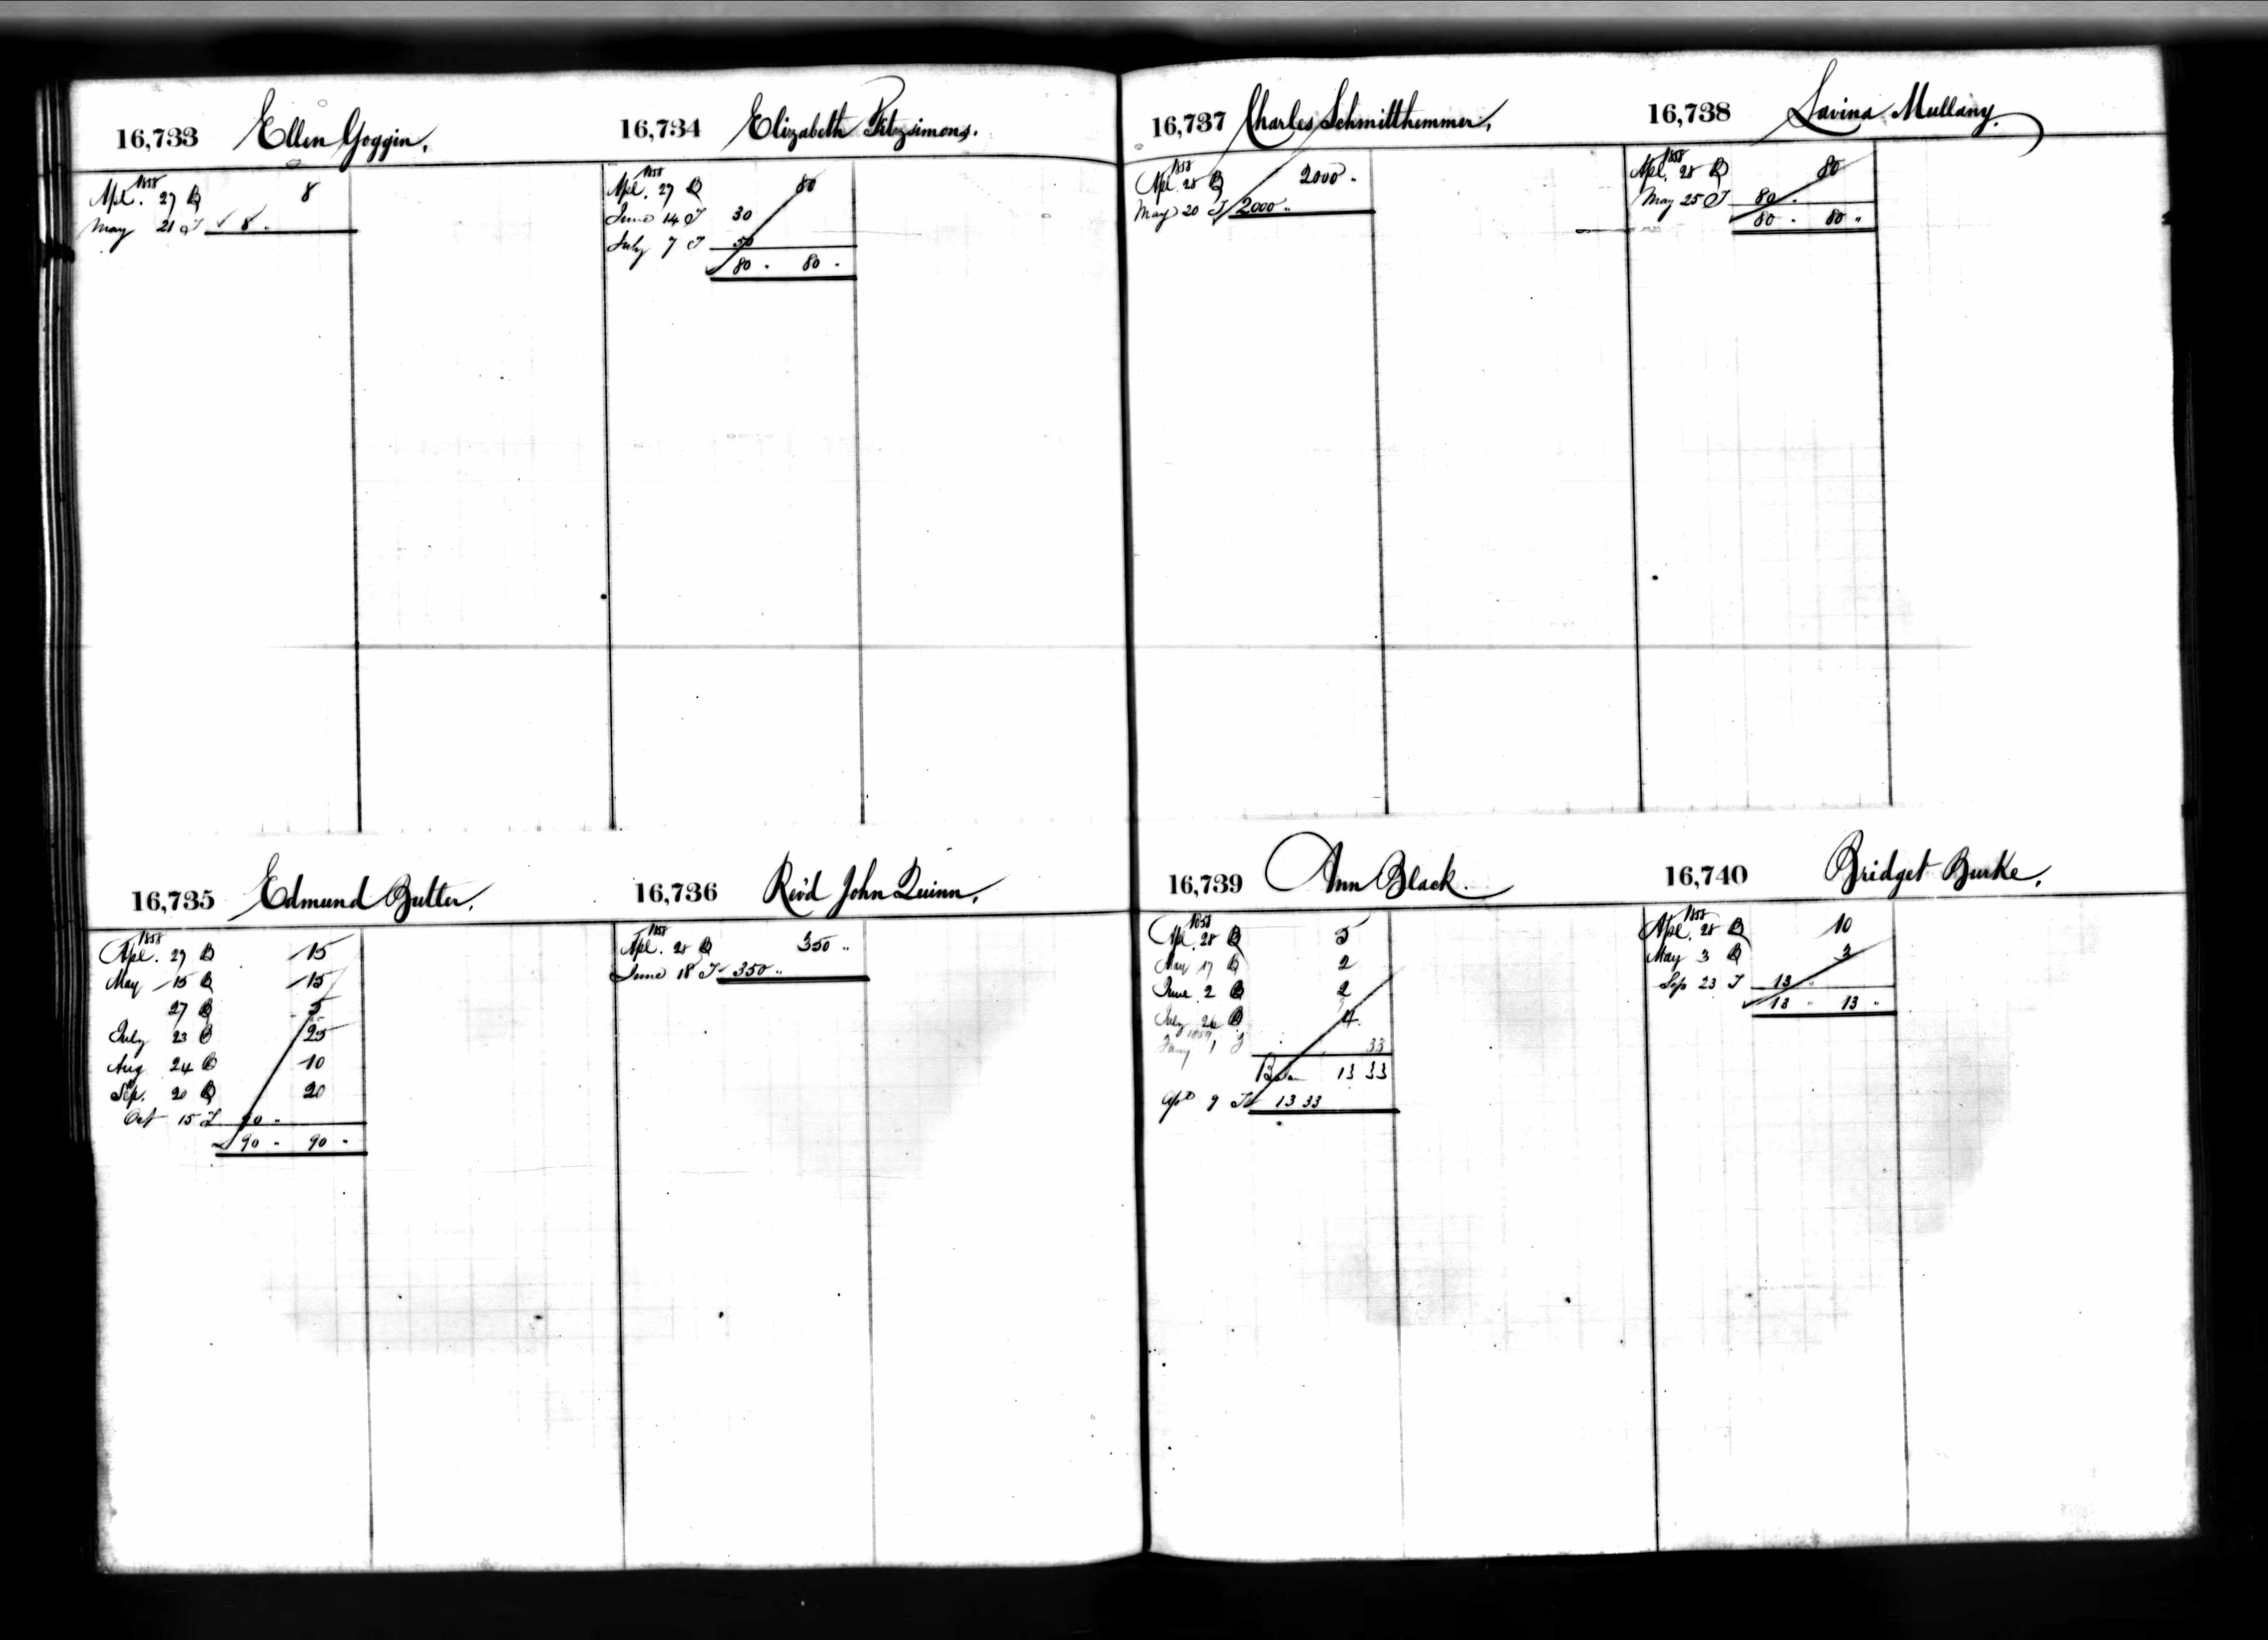 16,733 Ellen Goggin.
1858
Apl. 27 B 8
May 21 T 8 "
16,734 Elizabeth Fitzsimons.
1858
Apl. 27 B 80
June 14 T 30
July 7 T 50
80 " 80 "
16,735 Edmund Butler.
1858
Apl. 27 B 15
May 15 B 15
27 B 5
July 23 B 25
Aug 24 B 10
Sep. 20 B 20
Oct 15 T 90 "
90 " 90 "
16,736 Rev'd John Quinn.
1858
Apl. 28 B 350 "
June 18 T 350 "
16,737 Charles Schmitthemmer,
1858
Apl. 28 B 2000 "
May 20 T 2000 "
16,738 Lavina Mullany.
1858
Apl. 28 B 80
May 25 T 80 "
80 " 80 "
16,739 Ann Black.
1858
Apl. 28 B 5
May 17 B 2
June 2 B 2
July 26 B 4
1859
Jany 1 33
Balan 13 33
Apl 9 T 13 33
16,740 Bridget Burke.
1858
Apl. 28 B 10
May 3 B 3
Sep 23 T 13 "
13 " 13 "